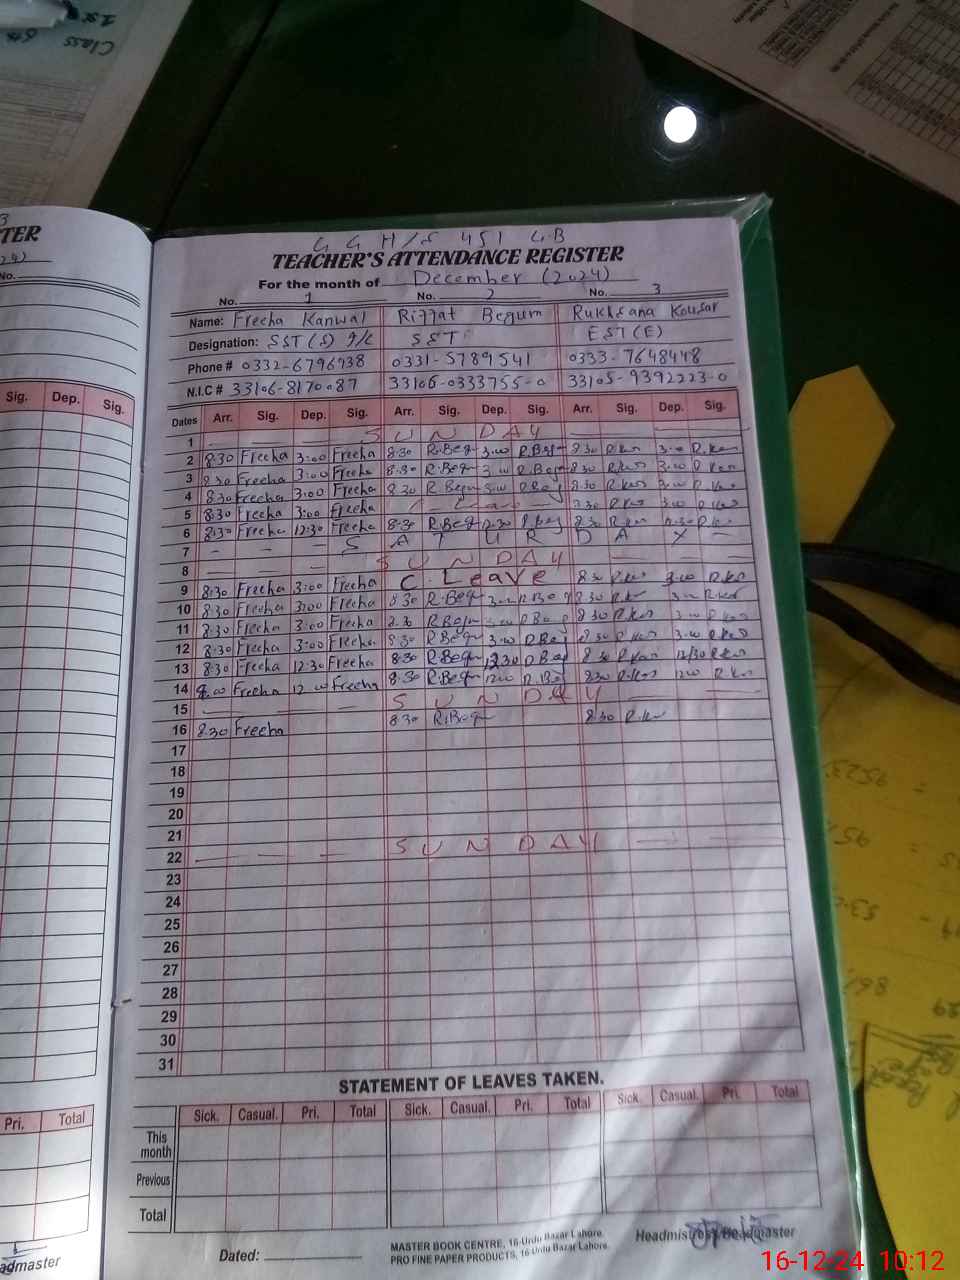 G G H/S 451 G.B
TEACHER'S ATTENDANCE REGISTER
For the month of December (2024)
No. 1 No. 2 No. 3
Name: Freeha Kanwal Riffat Begum Rukhsana Kousar
Designation: SST(S) I/C SST EST(E)
Phone # 0332-6796938 0331-5789541 0333-7648448
N.I.C # 33106-8170087 33106-0333755-0 33105-9392223-0
Dates Arr. Sig. Dep. Sig. Arr. Sig. Dep. Sig. Arr. Sig. Dep. Sig.
1 — — — S U N D A Y — —
2 8:30 Freeha 3:00 Freeha 8:30 R.Beg 3:00 R.Beg 8:30 R.Kou 3:00 R.Kou
3 8:30 Freeha 3:00 Freeha 8:30 R.Beg 3:00 R.Beg 8:30 R.Kou 3:00 R.Kou
4 8:30 Freeha 3:00 Freeha 8:30 R.Begu 3:00 R.Beg 8:30 R.Kou 3:00 R.Kou
5 8:30 Freeha 3:00 Freeha C - Leave - 8:30 R.Kou 3:00 R.Kou
6 8:30 Freeha 12:30 Freeha 8:30 R.Beg 12:30 R.Beg 8:30 R.Kou 12:30 R.Kou
7 — — — S A T U R D A Y —
8 — — — S U N D A Y — — —
9 8:30 Freeha 3:00 Freeha C. Leave 8:30 R.Kou 3:00 R.Kou
10 8:30 Freeha 3:00 Freeha 8:30 R.Beg 3:00 R.Beg 8:30 R.Kou 3:00 R.Kou
11 8:30 Freeha 3:00 Freeha 8:30 R.Begu 3:00 R.Beg 8:30 R.Kou 3:00 R.Kou
12 8:30 Freeha 3:00 Freeha 8:30 R.Begu 3:00 R.Beg 8:30 R.Kou 3:00 R.Kou
13 8:30 Freeha 12:30 Freeha 8:30 R.Begu 12:30 R.Beg 8:30 R.Kou 12:30 R.Kou
14 8:00 Freeha 12:00 Freeha 8:30 R.Begu 12:00 R.Beg 8:30 R.Kou 12:00 R.Kou
15 — — — — S U N D A Y — —
16 8:30 Freeha 8:30 R.Beg 8:30 R.Kou
17
18
19
20
21
22 — — — S U N D A Y — — —
23
24
25
26
27
28
29
30
31
STATEMENT OF LEAVES TAKEN.
Sick. Casual. Pri. Total Sick. Casual. Pri. Total Sick. Casual. Pri. Total
This month
Previous
Total
Dated:
MASTER BOOK CENTRE, 16-Urdu Bazar Lahore.
PRO FINE PAPER PRODUCTS, 16 Urdu Bazar Lahore.
Headmistress/Headmaster
TER
No.
Sig. Dep. Sig.
Pri. Total
admaster
Class 6th
16-12-24 10:12